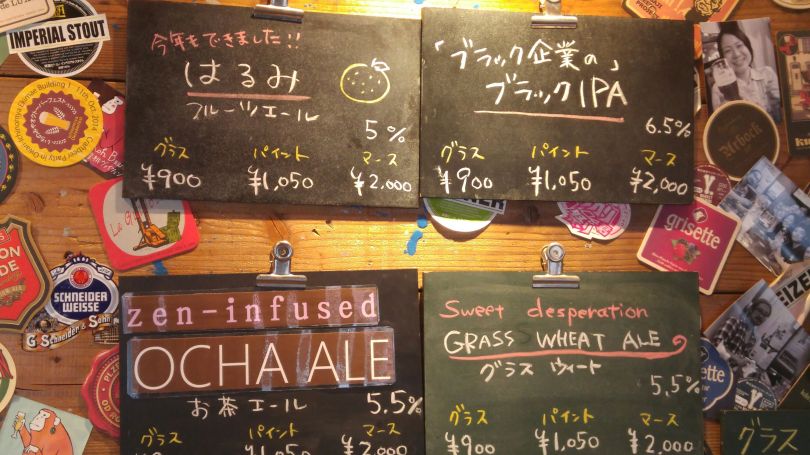 IMPERIAL STOUT
今年もできました!!
はるみ
フルーツエール
5%
グラス パイント マース
¥900 ¥1,050 ¥2,000
「ブラック企業の」
ブラックIPA
6.5%
グラス パイント マース
¥900 ¥1,050 ¥2,000
zen-infused
OCHA ALE
お茶エール 5.5%
グラス パイント マース
¥900 ¥1,050 ¥2,000
Sweet desperation
GRASS WHEAT ALE
グラス ウィート
5.5%
グラス パイント マース
¥900 ¥1,050 ¥2,000
グラス
grisette
SCHNEIDER
WEISSE
G. Schneider & Sohn